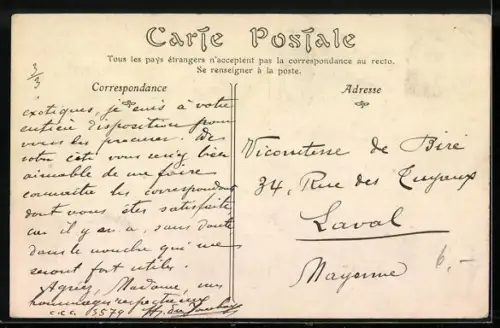 Carte Postale
Tous les pays étrangers n'acceptent pas la correspondance au recto.
Se renseigner à la poste.
Correspondance
Adresse
3/3
exotiques, je suis à votre
entière disposition pour
vous les procurer. De
votre côté vous seriez bien
aimable de me faire
connaître les correspondants
dont vous êtes satisfaite
car il y en a, sans doute
dans le nombre qui me
seront fort utiles.
Agréez, Madame, mes
hommages respectueux
c.c.c. 3579
Vicomtesse de Biré
34, Rue des Tuyaux
Laval
Mayenne
6.-